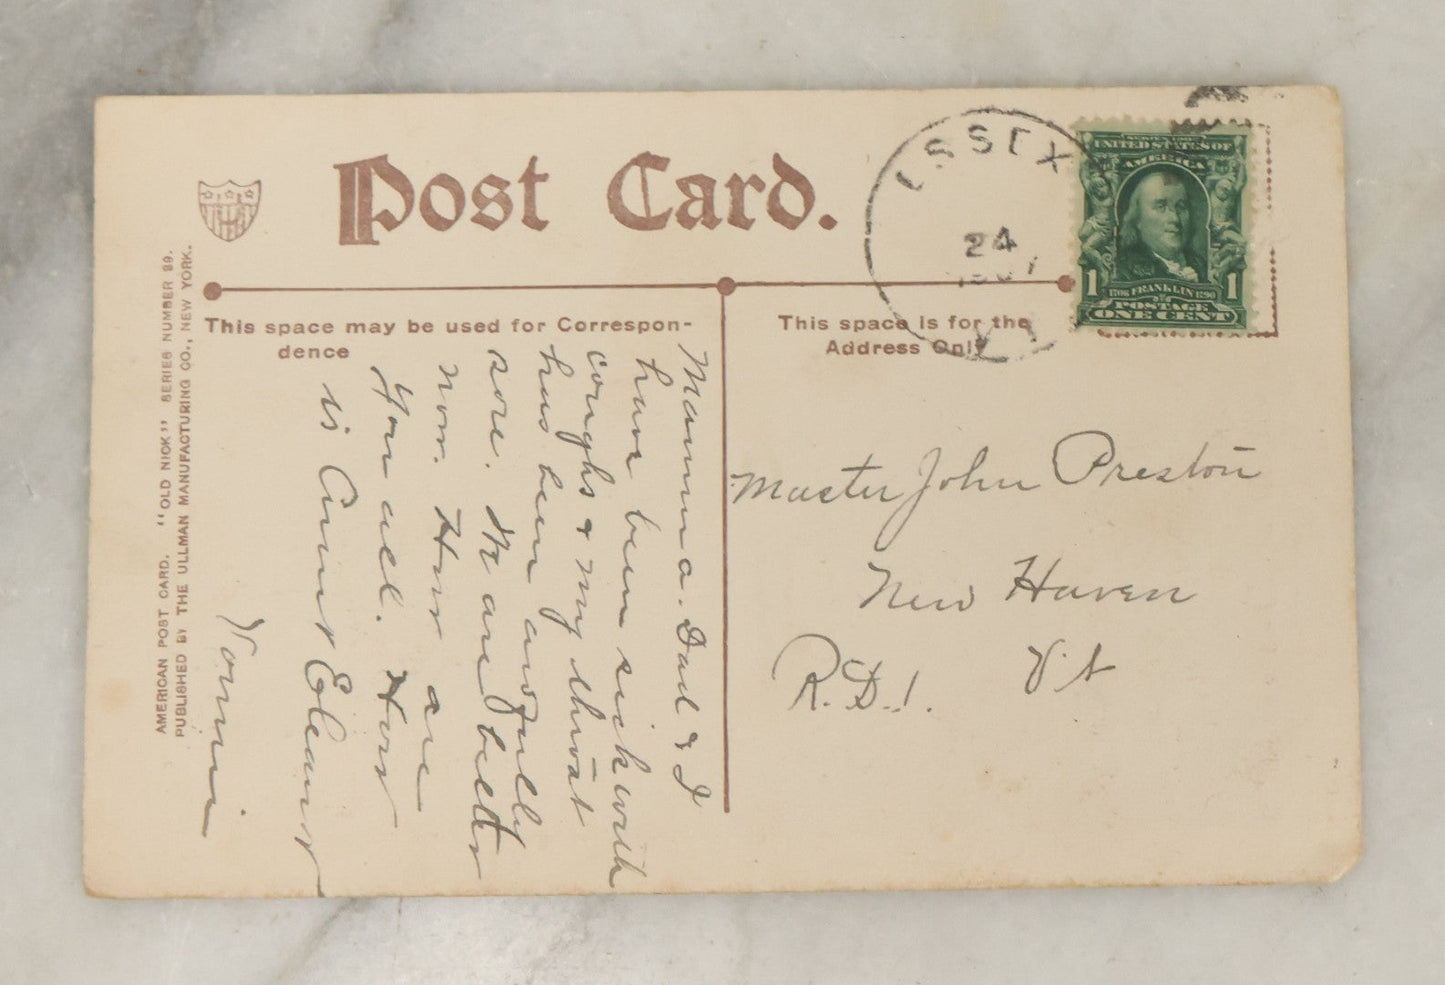 Post Card.
ESSEX
24
1907
VT
SERIES 1902
UNITED STATES OF
AMERICA
1706 FRANKLIN 1790
1 1
POSTAGE
ONE CENT
This space may be used for Correspon-
dence
This space is for the
Address Only
AMERICAN POST CARD. "OLD NICK" SERIES NUMBER 99.
PUBLISHED BY THE ULLMAN MANUFACTURING CO., NEW YORK.
Mamma. Dad & I
have been sick with
coughs & my throat
has been awfully
sore. We are better
now. How are
you all. How
is Aunt Eleanor
Master John Preston
New Haven
R.D.1. Vt